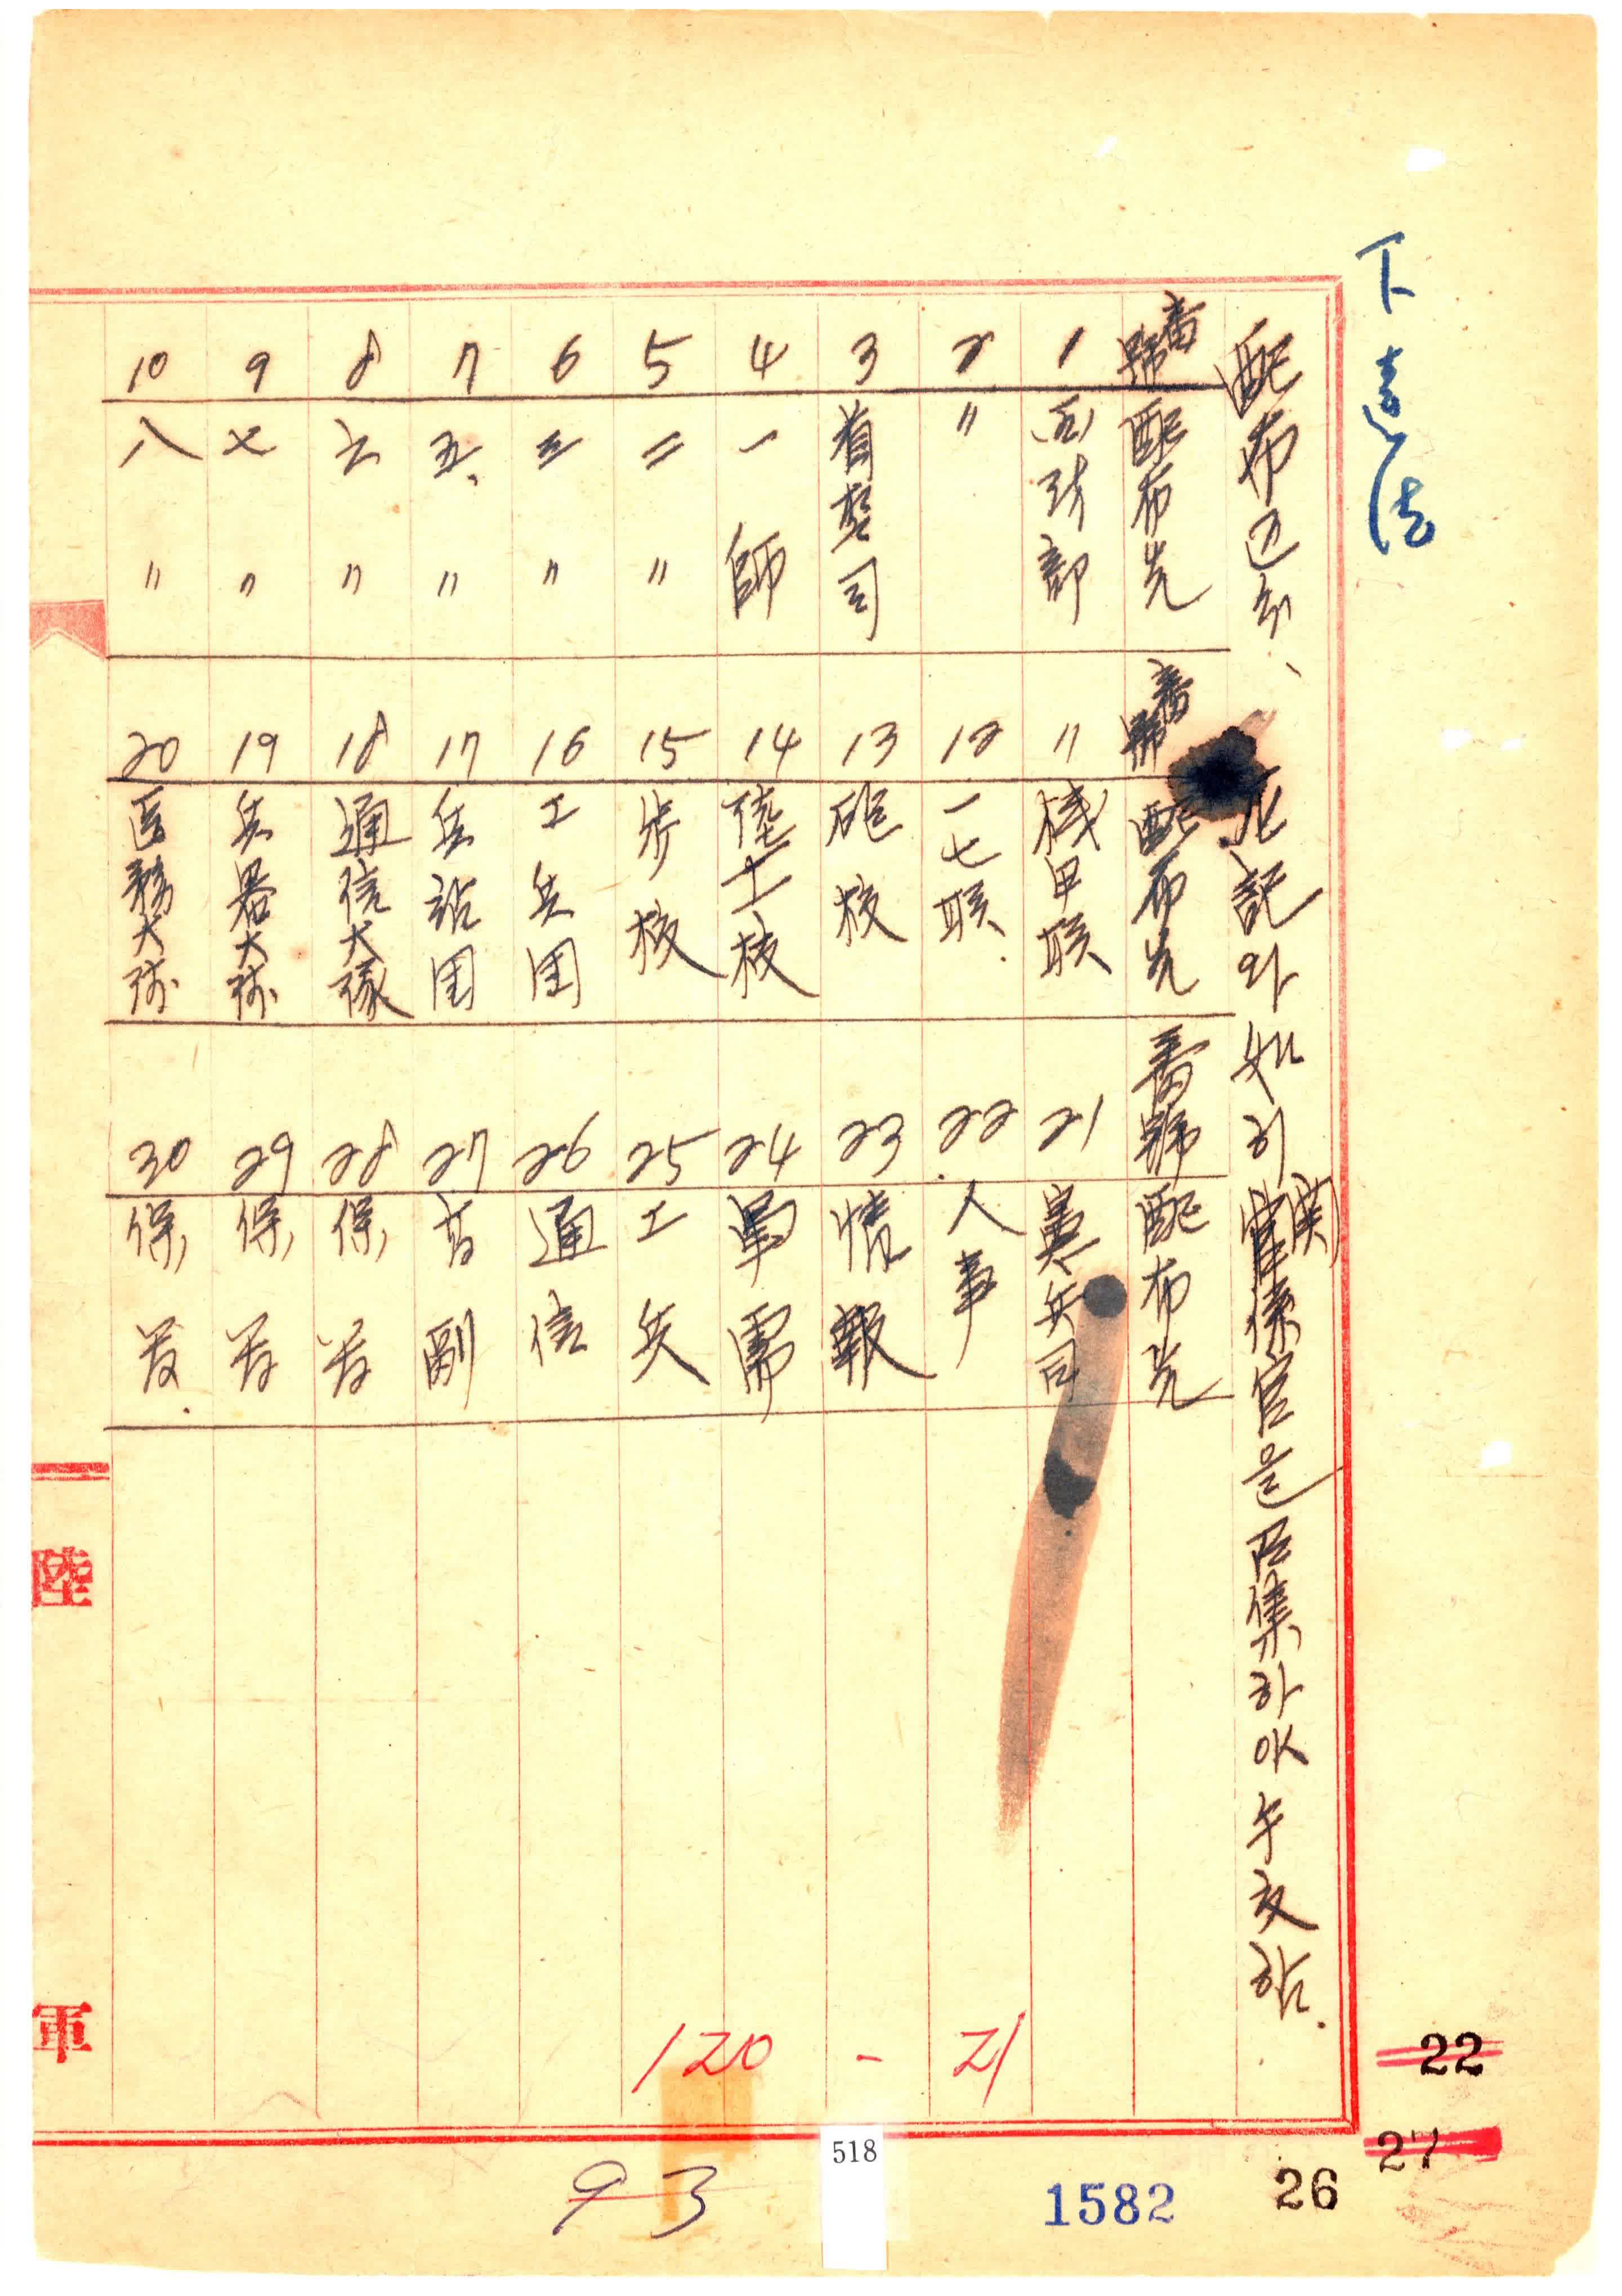 下達法
配布区分、左記와如히管関係官을召集하야手交함.
番號 配布先 番號 配布先 番號 配布先
1 国防部 11 機甲联 21 憲兵司
2 〃 12 一七联. 22 人事
3 首警司 13 砲校 23 情報
4 一師 14 陸士校 24 軍需
5 二〃 15 步校 25 工兵
6 三〃 16 工兵団 26 通信
7 五〃 17 兵站団 27 高副
8 六〃 18 通信大隊 28 保
9 七〃 19 兵器大隊 29 保
10 八〃 20 医務大隊 30 保
陸 軍
120 - 21
22
27
26
1582
518
93